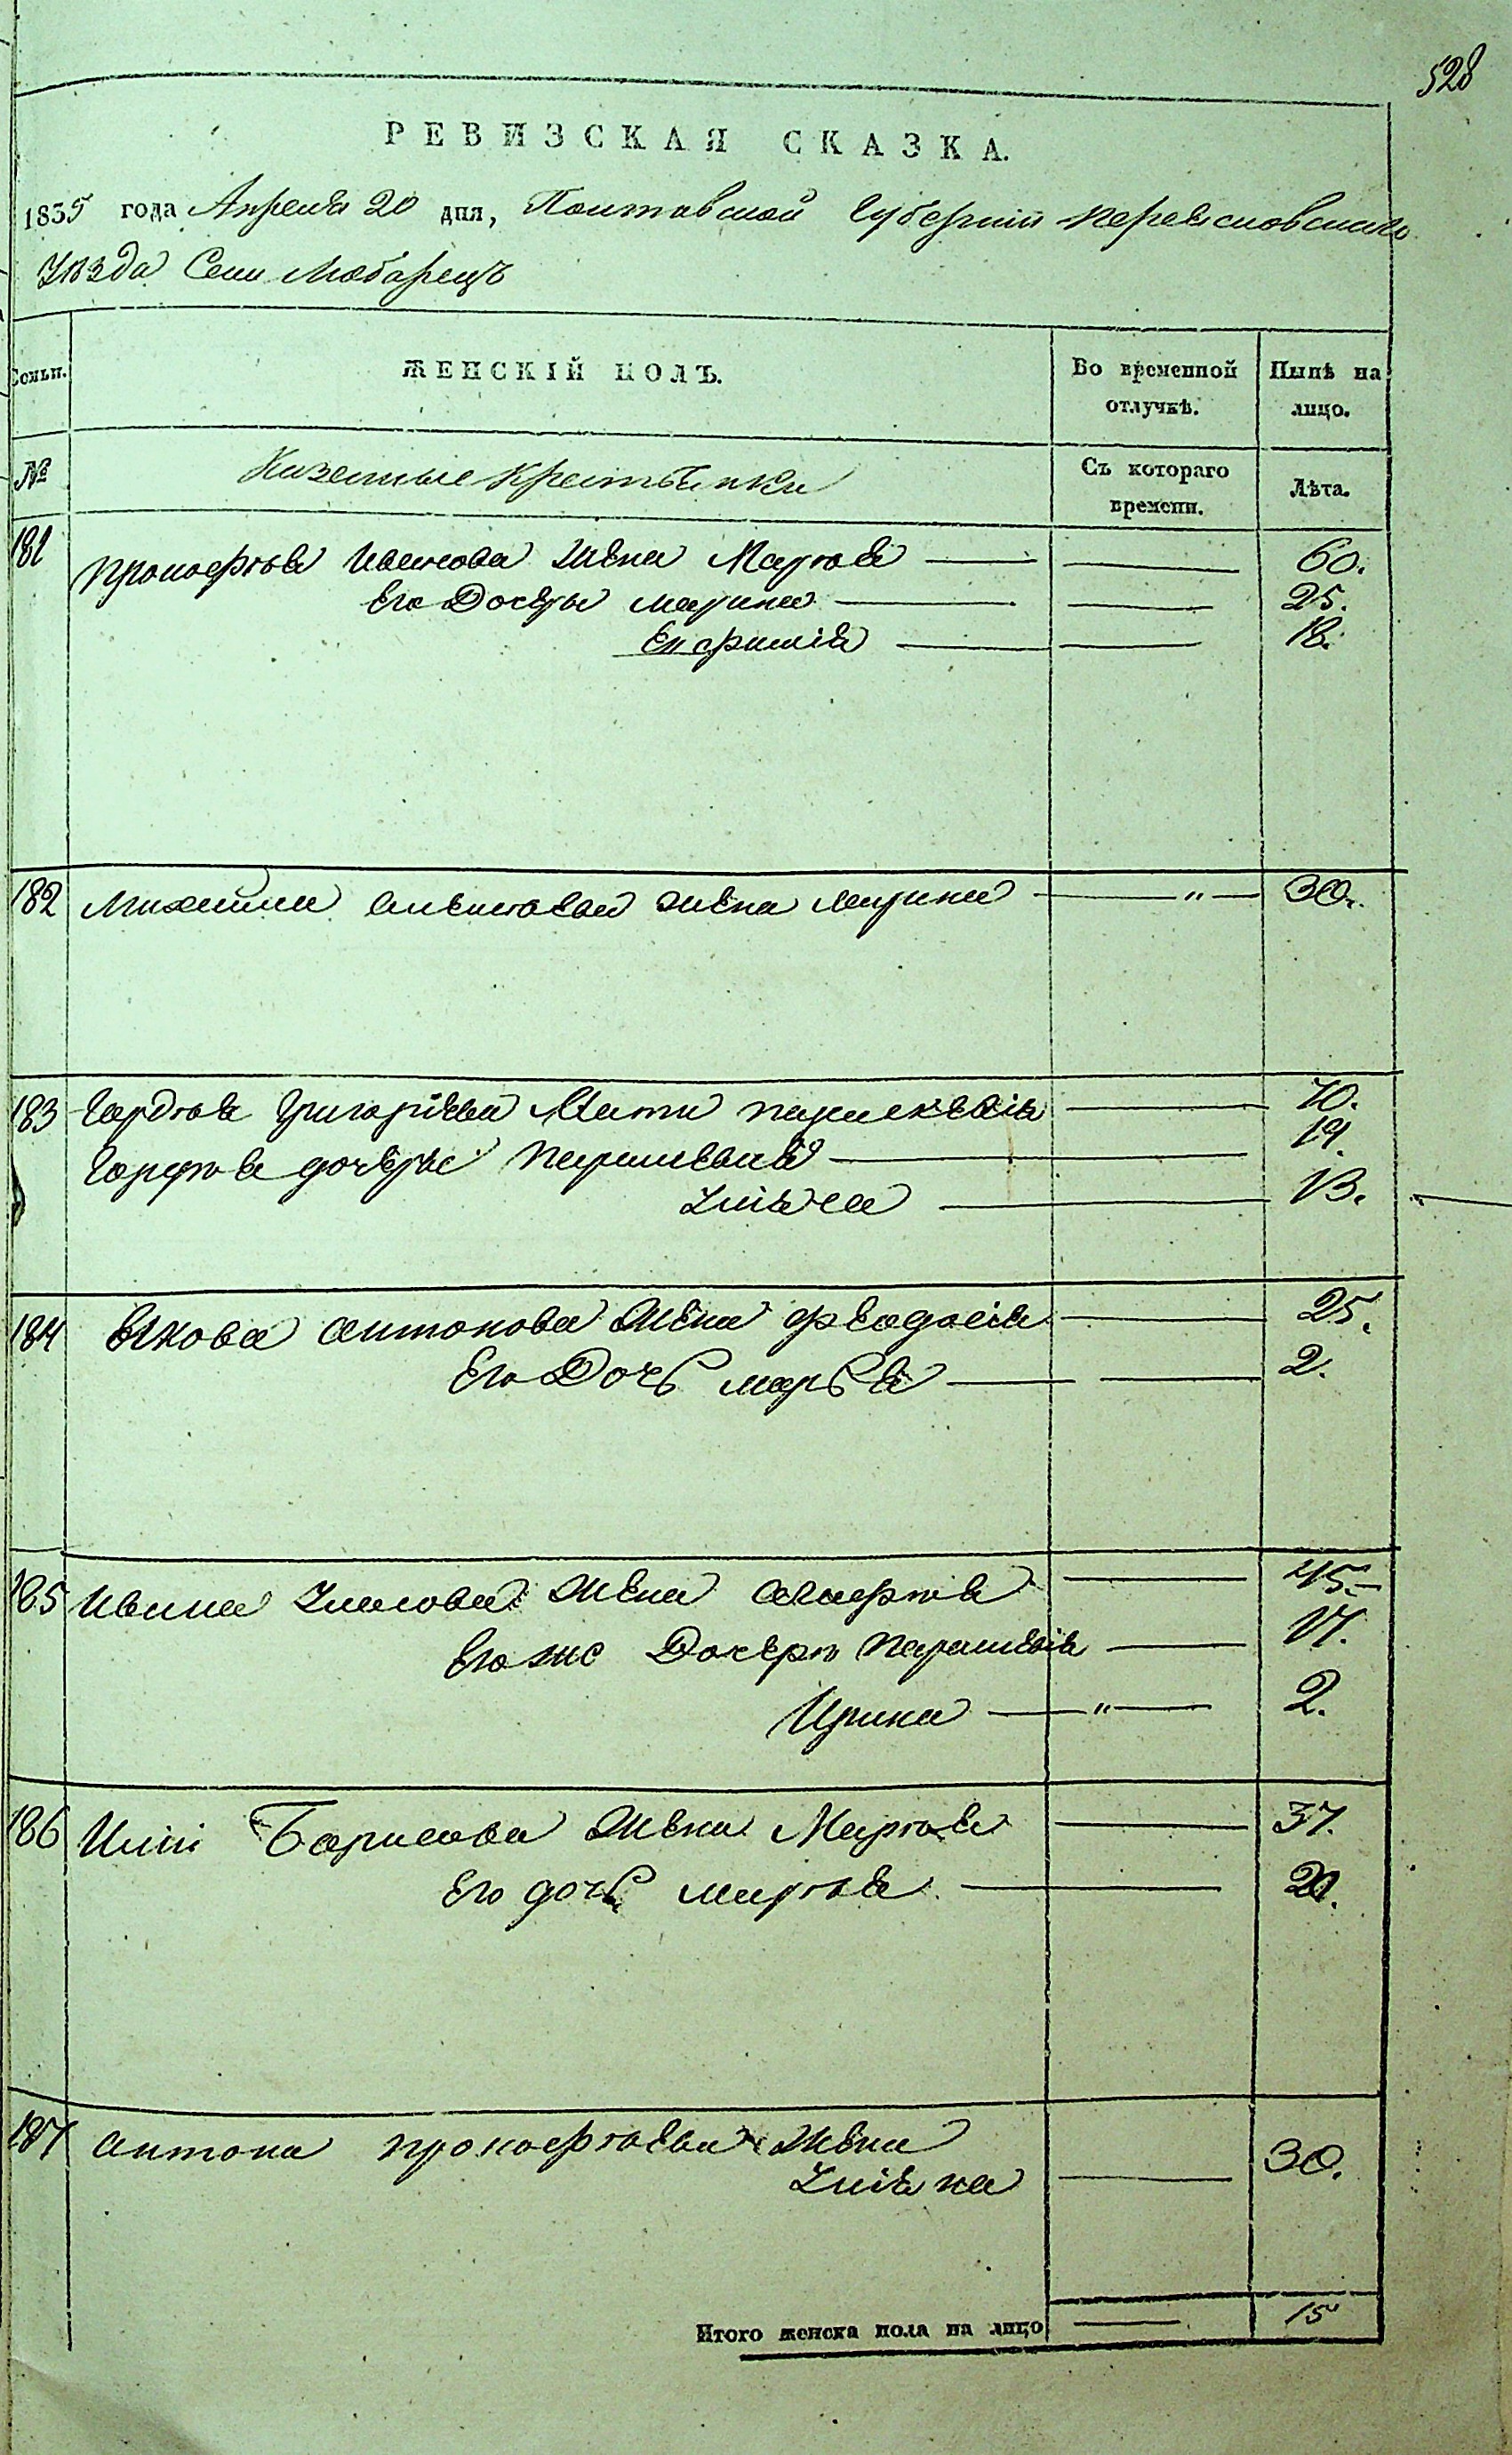 528
РЕВИЗСКАЯ СКАЗКА.
1835 года Апреля 20 дня, Полтавской Губернии Переясловскаго
Уезда Села Любарецъ
Семьи. ЖЕНСКІЙ ПОЛЪ. Во временной отлучкѣ. Нынѣ на лицо.
№ Казенные Крестьянки Съ котораго времени. Лѣта.
181 Прокофія Иванова Жена Марія 60.
Его Дочеры Марина 25.
18.
182 Михайла жена Марина 30.
183 Гордѣя Григоріева Мати Параскевія 70.
Гордѣя дочеры Параскевія 19.
Уліяна 13.
184 Якова Антонова Жена Феодосія 25.
Его Дочь Марья 2.
185 Ивана Жена Агафія 45.
Его же Дочери Параскевія 17.
Ирина 2.
186 Иліи Борисова Жена Марія 37.
Его дочь Марія 20.
187 Антона Прокофіева Жена
Уліяна 30.
Итого женска пола на лицо 15